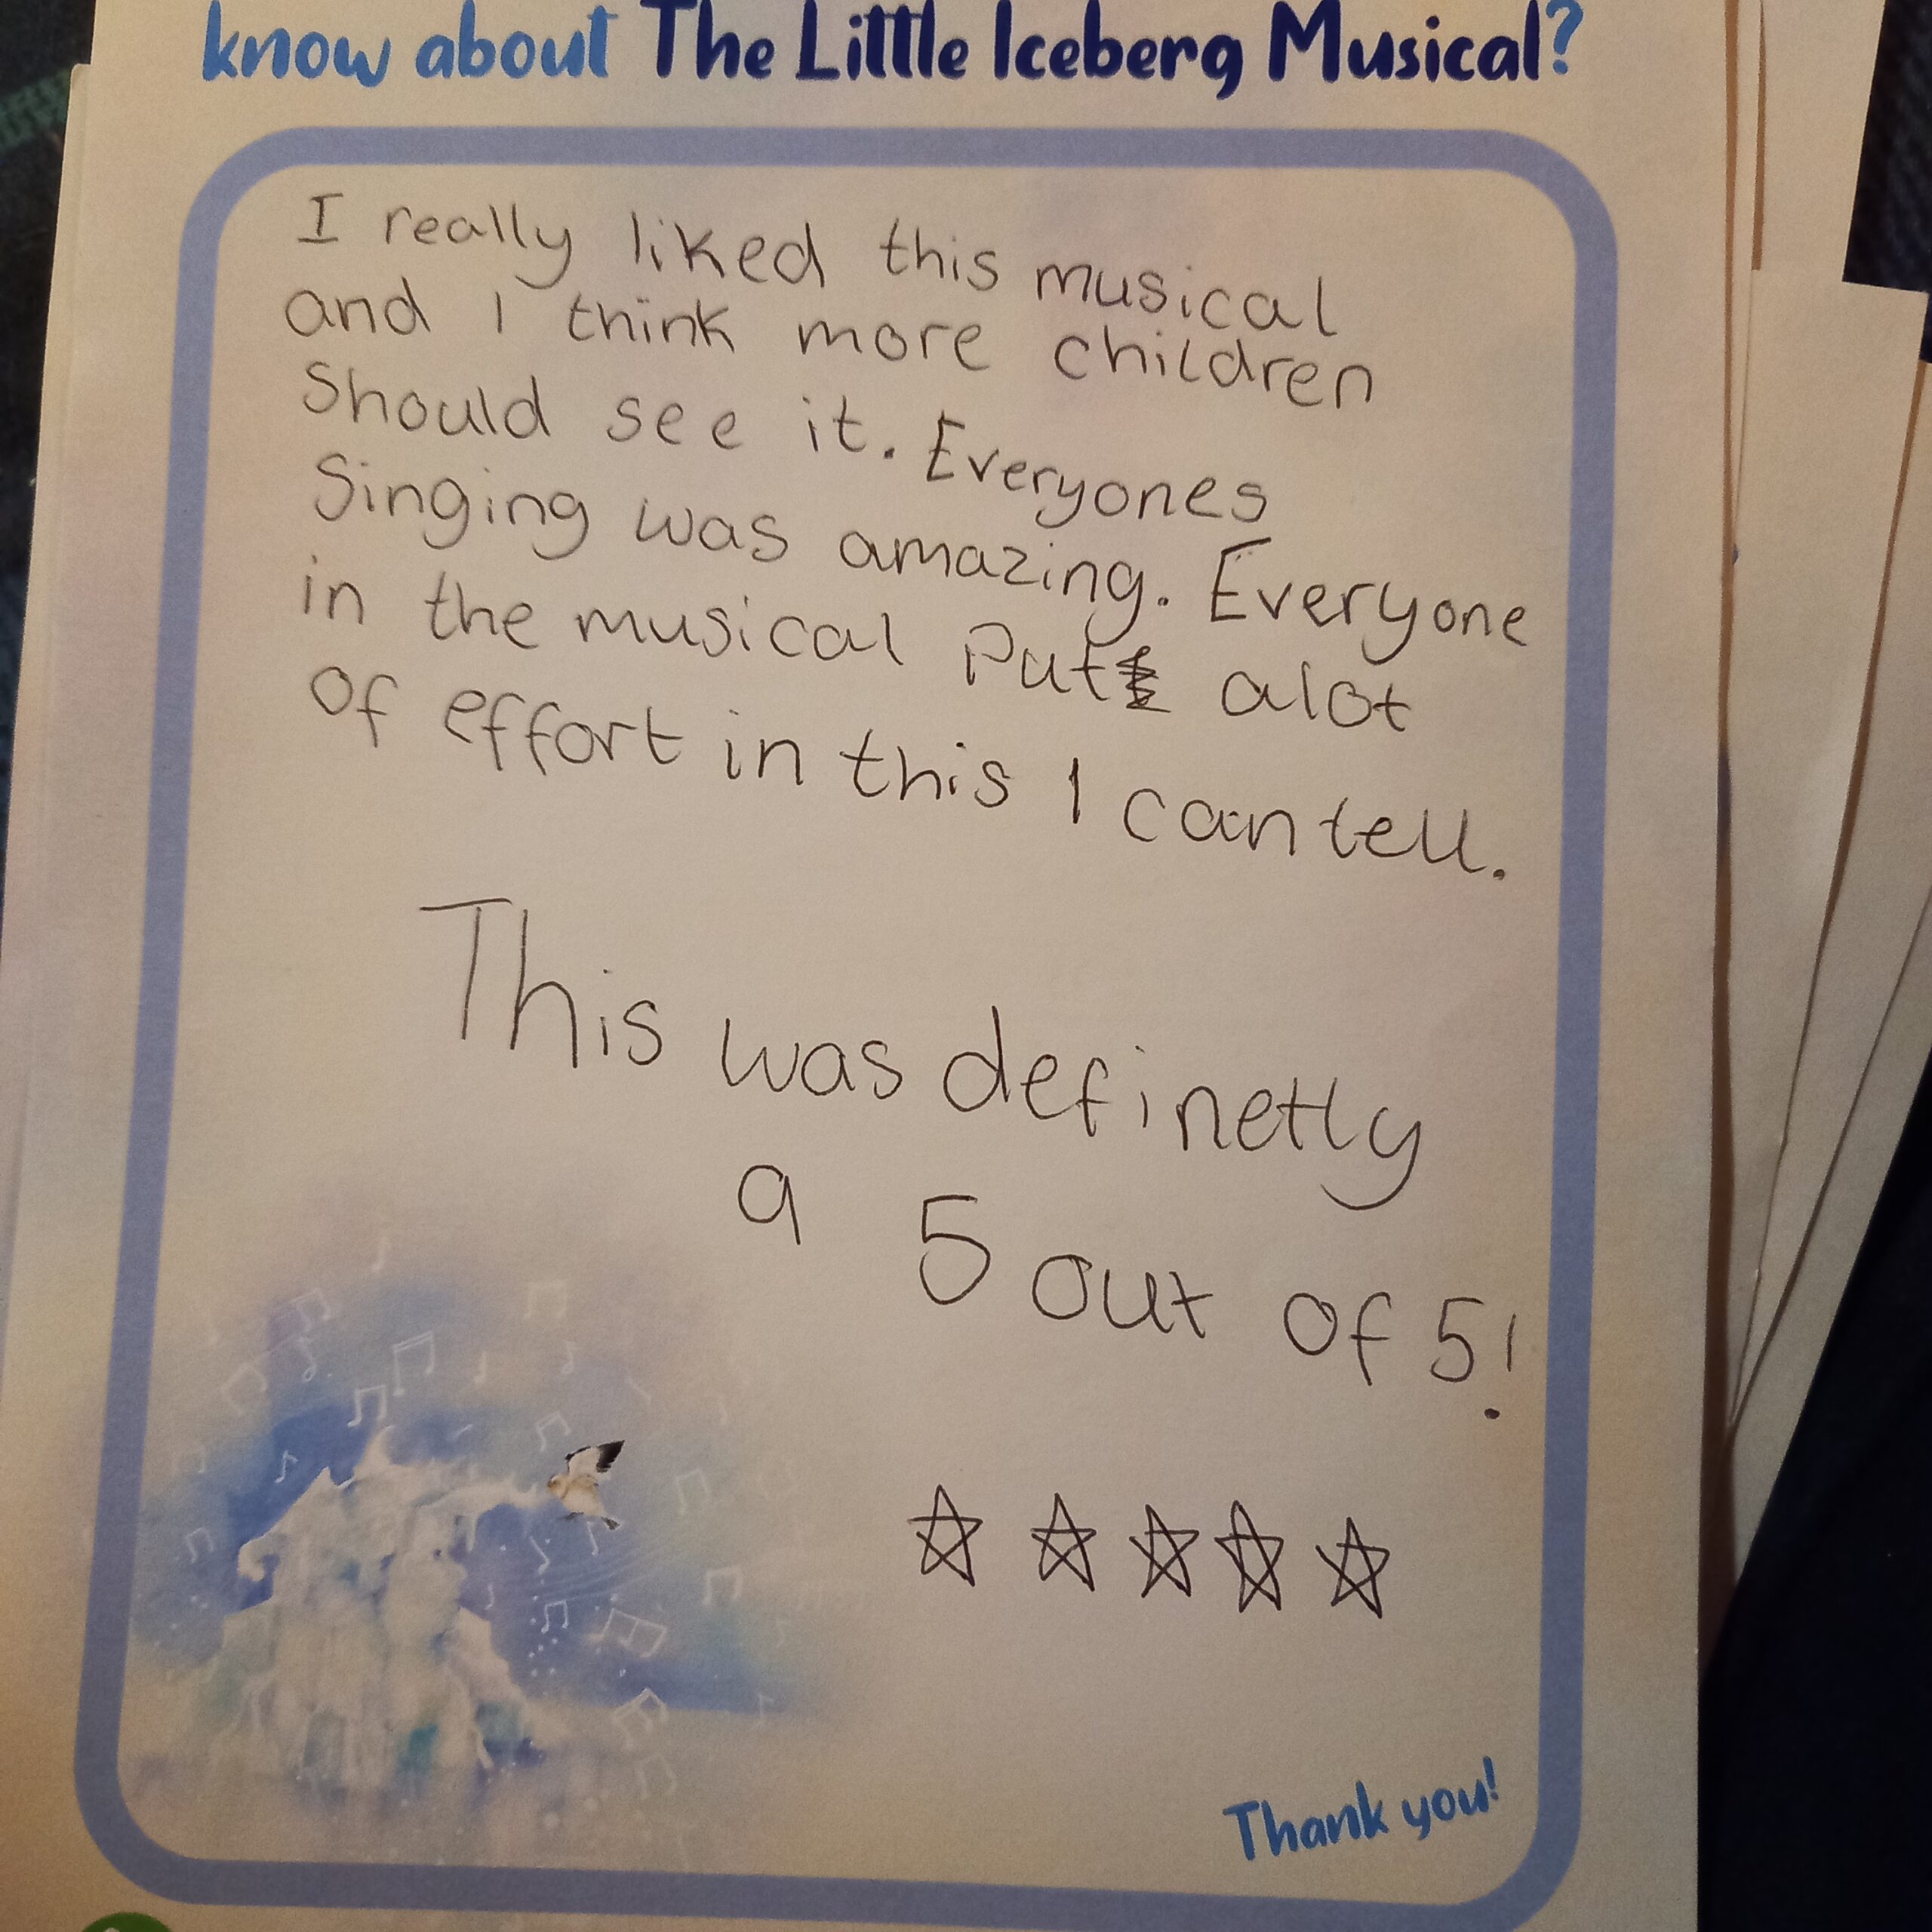 know about The Little Iceberg Musical?
I really liked this musical
and I think more children
Should see it. Everyones
Singing was amazing. Everyone
in the musical Put alot
of effort in this I can tell.
This was definetly
a 5 out of 5!
Thank you!